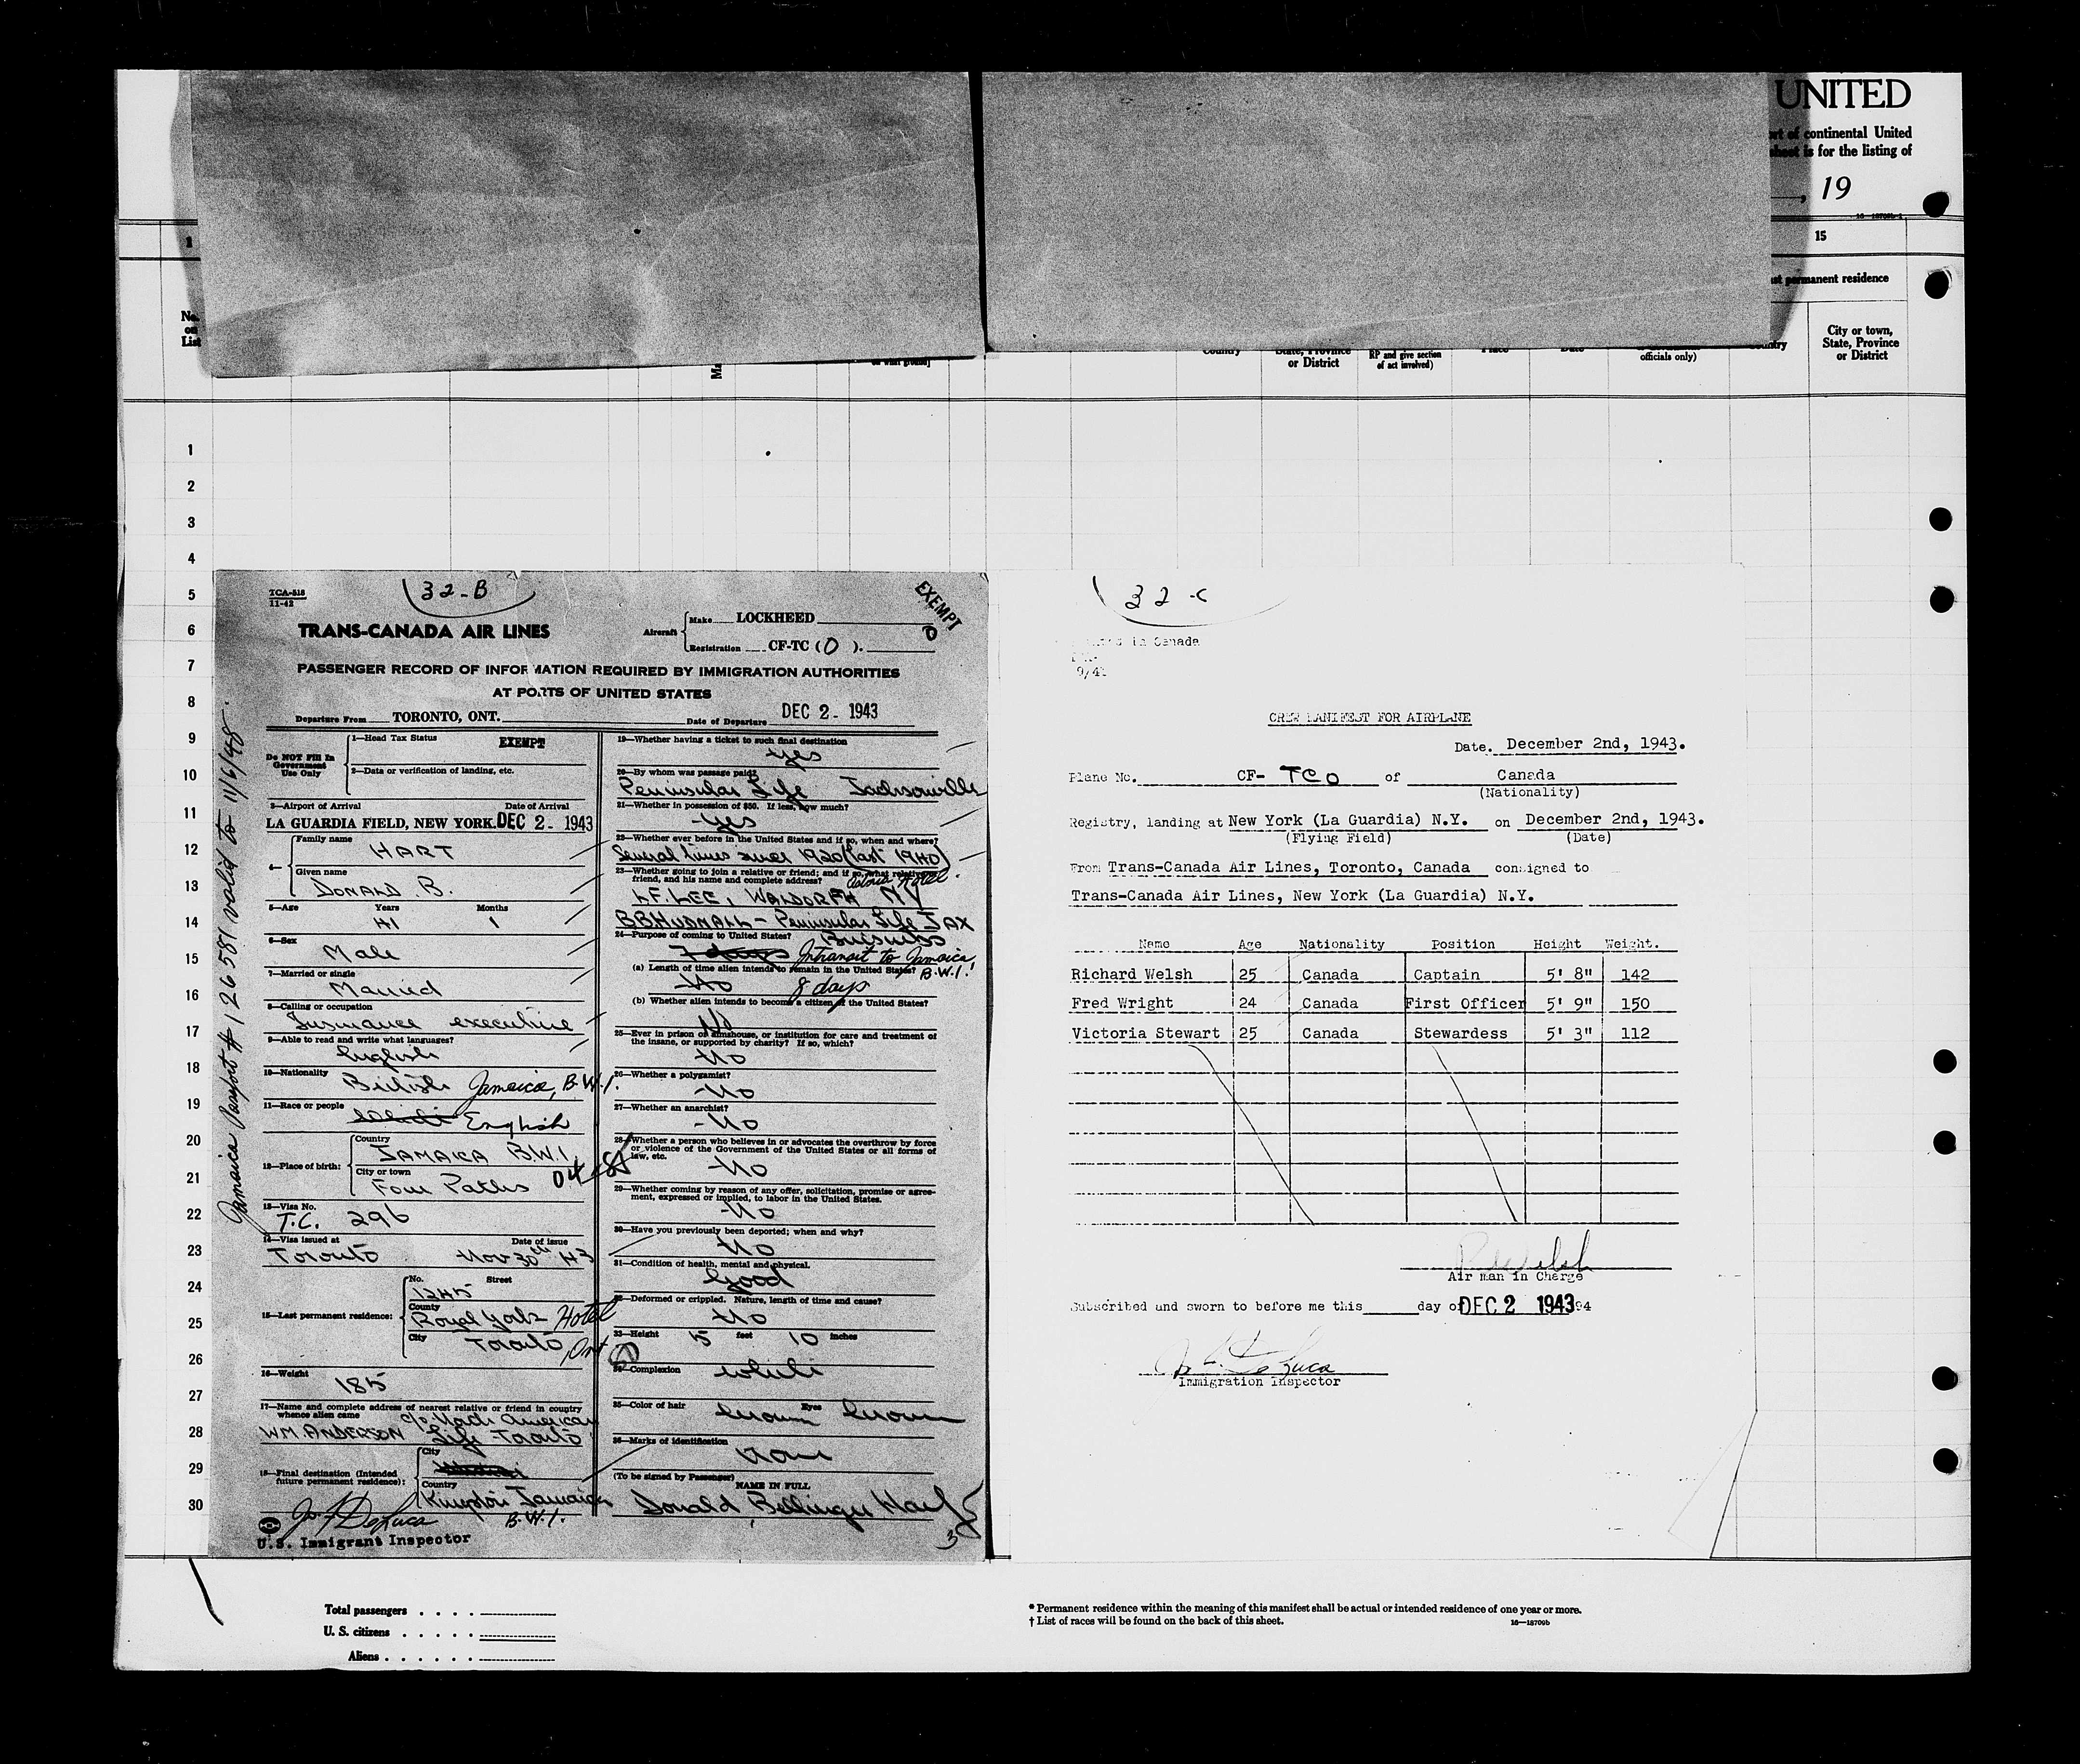 UNITED
of continental United
sheet is for the listing of
, 19
15
permanent residence
No.
on
List
1
City or town,
State, Province
or District
State, Province
or District
RP and give section
of act involved)
officials only)
1
2
3
4
5
6
7
8
9
10
11
12
13
14
15
16
17
18
19
20
21
22
23
24
25
26
27
28
29
30
32-B
TCA-518
11-42
EXEMPT
TRANS-CANADA AIR LINES
Aircraft
Make LOCKHEED
Registration CF-TC (O).
PASSENGER RECORD OF INFORMATION REQUIRED BY IMMIGRATION AUTHORITIES
AT PORTS OF UNITED STATES
Departure From TORONTO, ONT. Date of Departure DEC 2 - 1943
Do NOT Fill In
Government
Use Only
1—Head Tax Status EXEMPT
2—Data or verification of landing, etc.
3—Airport of Arrival Date of Arrival
LA GUARDIA FIELD, NEW YORK. DEC 2 - 1943
4— Family name
HART
Given name
DONALD B.
5—Age Years Months
41 1
6—Sex
Male
7—Married or single
Married
8—Calling or occupation
Insurance executive
9—Able to read and write what languages?
English
10—Nationality British Jamaica, B.W.I.
11—Race or people White English
12—Place of birth:
Country
JAMAICA B.W.I.
City or town
Four Paths
13—Visa No.
T.C. 296
14—Visa issued at Date of issue
Toronto Nov 30th 43
15—Last permanent residence:
No. Street
1245
County
Royal York Hotel
City
Toronto, Ont
16—Weight
185
17—Name and complete address of nearest relative or friend in country
whence alien came c/o North American
WM. ANDERSON Life - Toronto
18—Final destination (Intended
future permanent residence):
City
Country
Kingston Jamaica
B.W.I.
U.S. Immigrant Inspector
Jamaica Passport # 126581 valid to 11/6/48.
19—Whether having a ticket to such final destination
Yes
20—By whom was passage paid?
Peninsular Life Jacksonville
21—Whether in possession of $50. If less, how much?
Yes
22—Whether ever before in the United States and if so, when and where?
Several times since 1920 (last 1940)
23—Whether going to join a relative or friend; and if so, what relative or
friend, and his name and complete address? Astoria Hotel.
L.F. LEE, WALDORF NY
B B HUDNALL - Peninsular Life JAX
24—Purpose of coming to United States? Business
7 days Intransit to Jamaica,
(a) Length of time alien intends to remain in the United States? B.W.I.
No 8 days
(b) Whether alien intends to become a citizen of the United States?
No
25—Ever in prison or almshouse, or institution for care and treatment of
the insane, or supported by charity? If so, which?
No
26—Whether a polygamist?
No
27—Whether an anarchist?
No
28—Whether a person who believes in or advocates the overthrow by force
or violence of the Government of the United States or all forms of
law, etc.
No
29—Whether coming by reason of any offer, solicitation, promise or agree-
ment, expressed or implied, to labor in the United States.
No
30—Have you previously been deported; when and why?
No
31—Condition of health, mental and physical.
Good
32—Deformed or crippled. Nature, length of time and cause?
No
33—Height 5 feet 10 inches
34—Complexion white
35—Color of hair brown Eyes brown
36—Marks of identification
None
(To be signed by Passenger)
NAME IN FULL
Donald Bellinger Hart
3
32-C
in Canada
9/41
CREW MANIFEST FOR AIRPLANE
Date. December 2nd, 1943.
Plane No. CF- TCO of Canada
(Nationality)
Registry, landing at New York (La Guardia) N.Y. on December 2nd, 1943.
(Flying Field) (Date)
From Trans-Canada Air Lines, Toronto, Canada consigned to
Trans-Canada Air Lines, New York (La Guardia) N.Y.
Name Age Nationality Position Height Weight.
Richard Welsh 25 Canada Captain 5' 8" 142
Fred Wright 24 Canada First Officer 5' 9" 150
Victoria Stewart 25 Canada Stewardess 5' 3" 112
R Welsh
Air man in Charge
Subscribed and sworn to before me this day of DEC 2 1943 94
Immigration Inspector
Total passengers
U. S. citizens
Aliens
* Permanent residence within the meaning of this manifest shall be actual or intended residence of one year or more.
† List of races will be found on the back of this sheet.
16—18709b